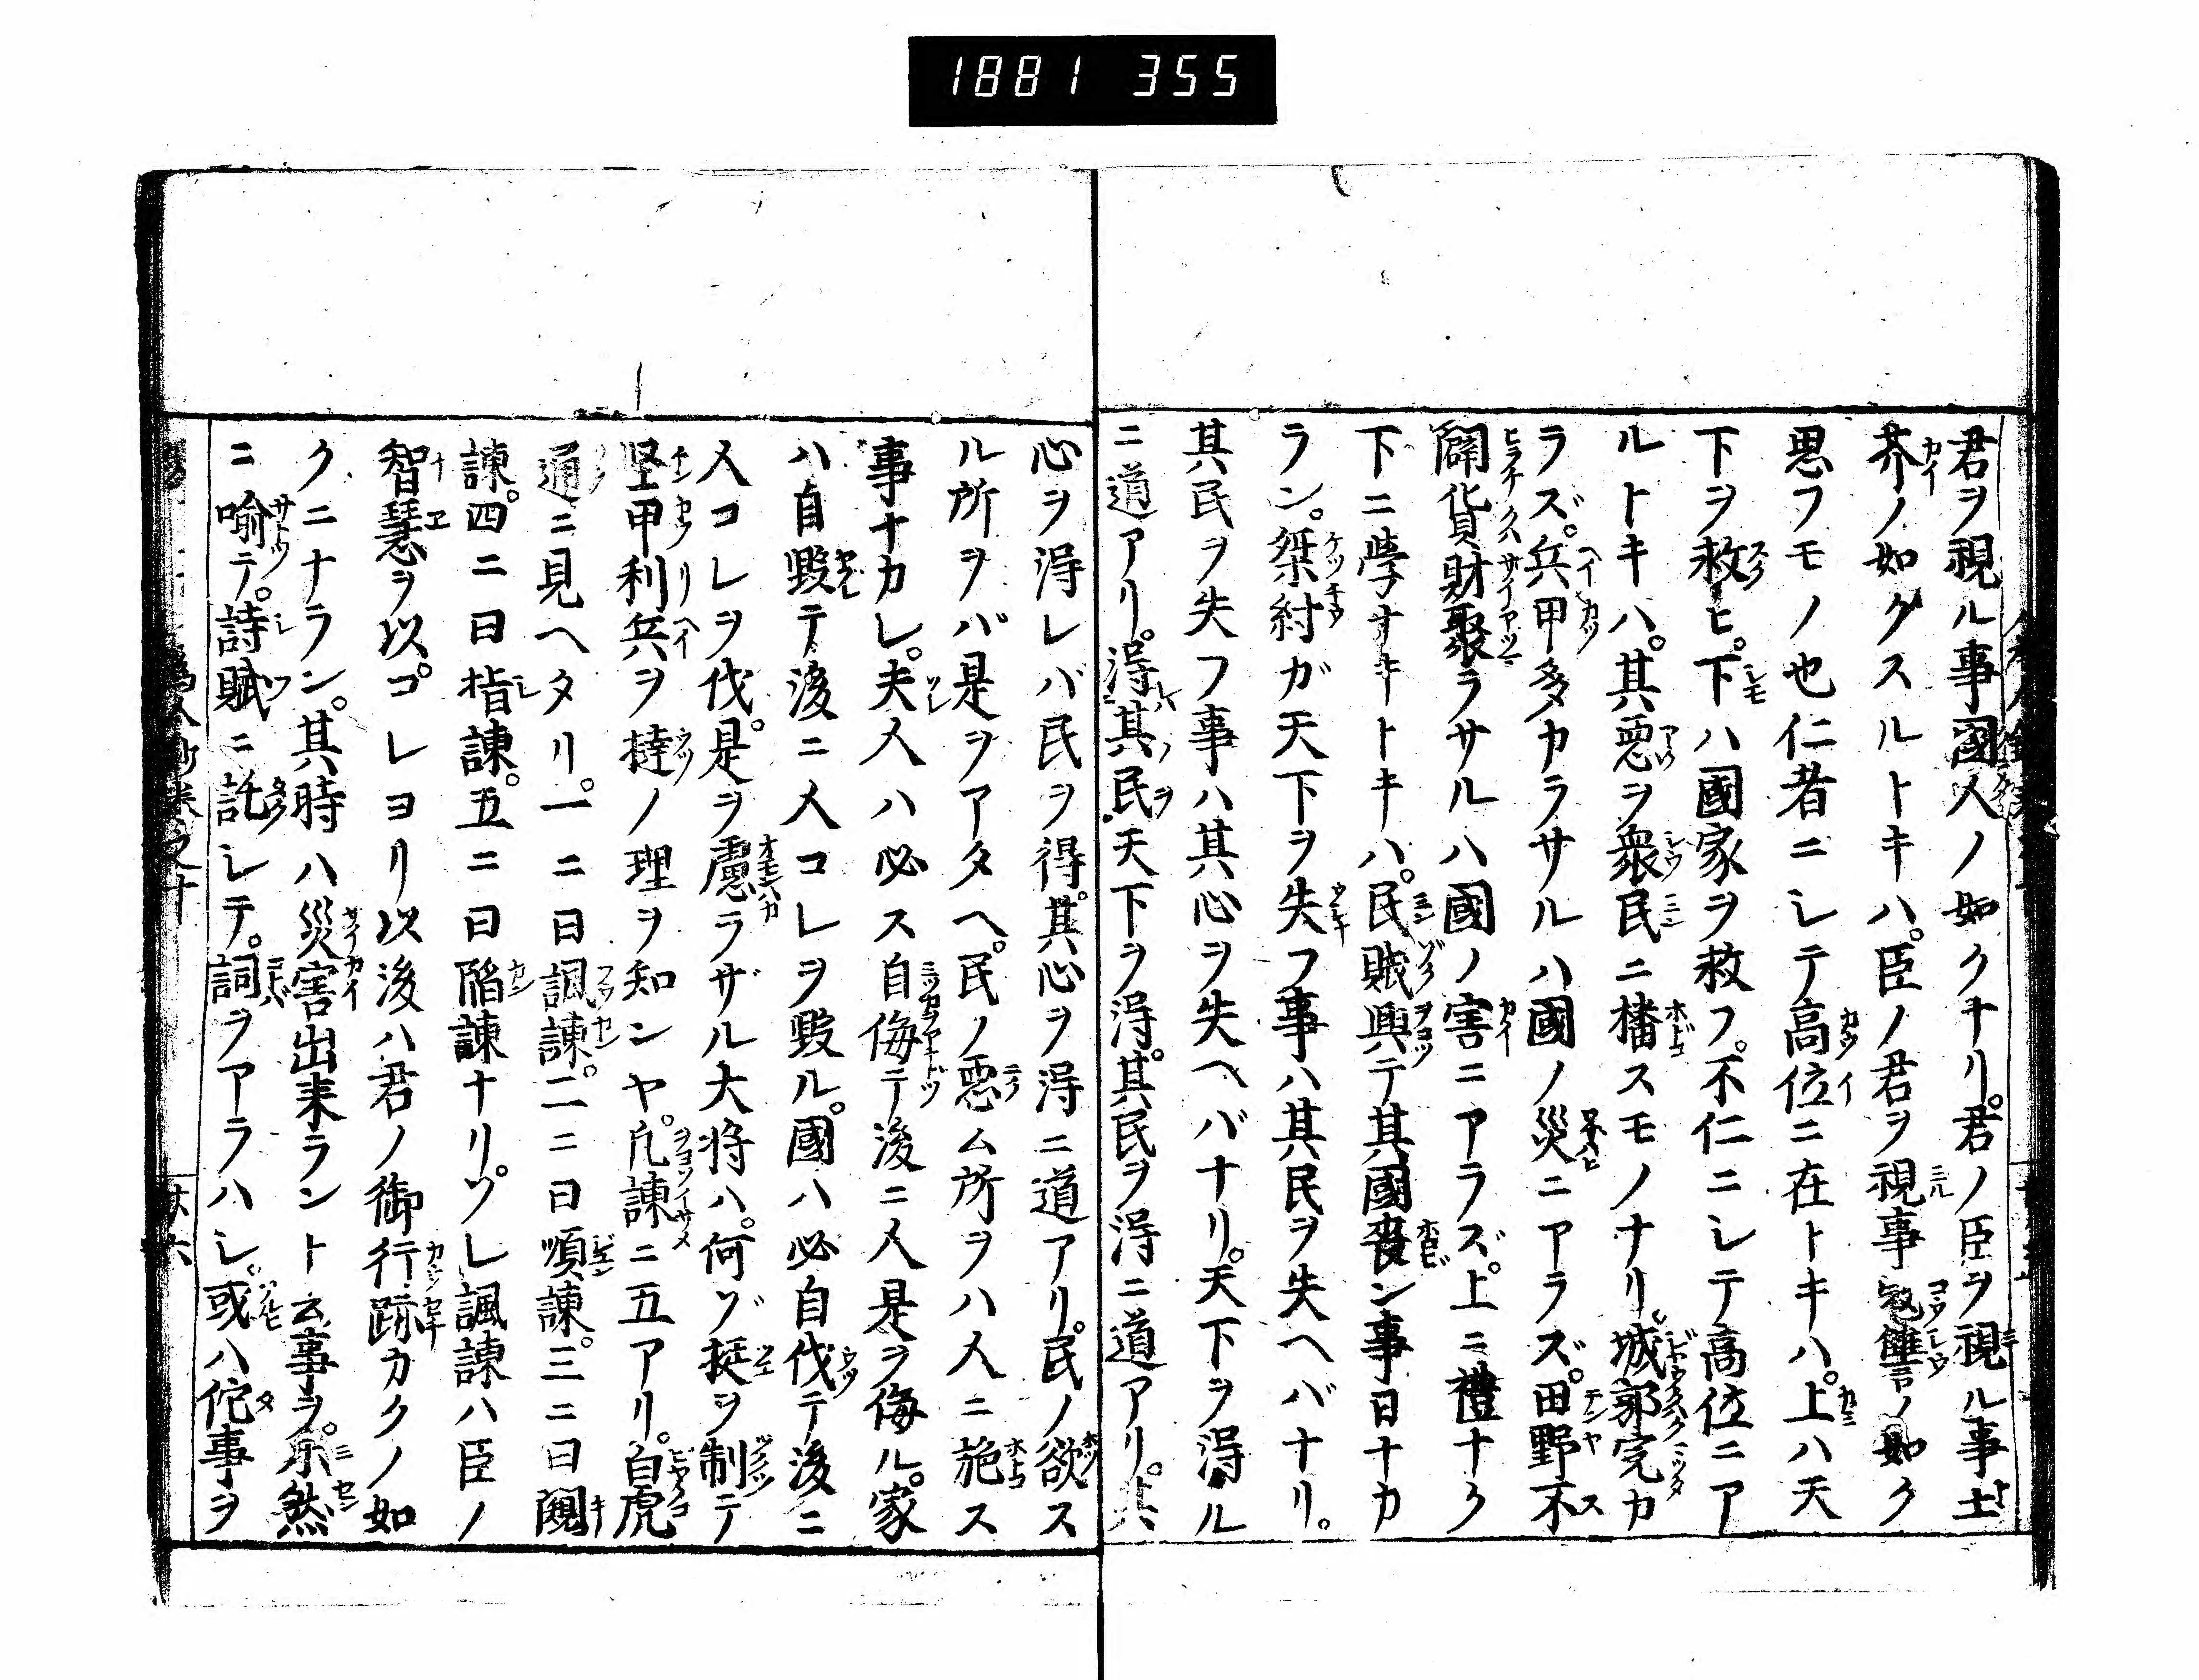 1881 355
君ヲ視ル事國人ノ如クナリ。君ノ臣ヲ視ル事土
芥ノ如クスルトキハ。臣ノ君ヲ視事冦讎ノ如ク
思フモノ也仁者ニシテ高位ニ在トキハ。上ハ天
下ヲ救ヒ。下ハ國家ヲ救フ。不仁ニシテ高位ニア
ルトキハ。其惡ヲ衆民ニ播スモノナリ。城郭完カ
ラズ。兵甲多カラサルハ國ノ災ニアラズ。田野不
闢貨財聚ラサルハ國ノ害ニアラズ。上ニ禮ナク
下ニ學ナキトキハ。民賊興テ其國喪ン事日ナカ
ラン。桀紂ガ天下ヲ失フ事ハ其民ヲ失ヘバナリ。
其民ヲ失フ事ハ其心ヲ失ヘバナリ。天下ヲ得ル
ニ道アリ。得其民天下ヲ得。其民ヲ得ニ道アリ。其
心ヲ得レバ民ヲ得。其心ヲ得ニ道アリ。民ノ欲ス
ル所ヲバ是ヲアタヘ。民ノ惡ム所ヲハ人ニ施ス
事ナカレ。夫人ハ必ス自侮テ後ニ人是ヲ侮ル。家
ハ自毀テ後ニ人コレヲ毀ル。國ハ必自伐テ後ニ
人コレヲ伐。是ヲ慮ラザル大将ハ。何ゾ挺ヲ制テ
堅甲利兵ヲ撻ノ理ヲ知ンヤ。凡諫ニ五アリ。白虎
通ニ見ヘタリ。一ニ曰諷諫。二ニ曰順諫。三ニ曰闚
諫。四ニ曰指諫。五ニ曰陷諫ナリ。ソレ諷諫ハ臣ノ
智慧ヲ以。コレヨリ以後ハ君ノ御行跡カクノ如
クニナラン。其時ハ災害出来ラント云事ヲ。未然
ニ喻テ。詩賦ニ託シテ。詞ヲアラハシ。或ハ佗事ヲ